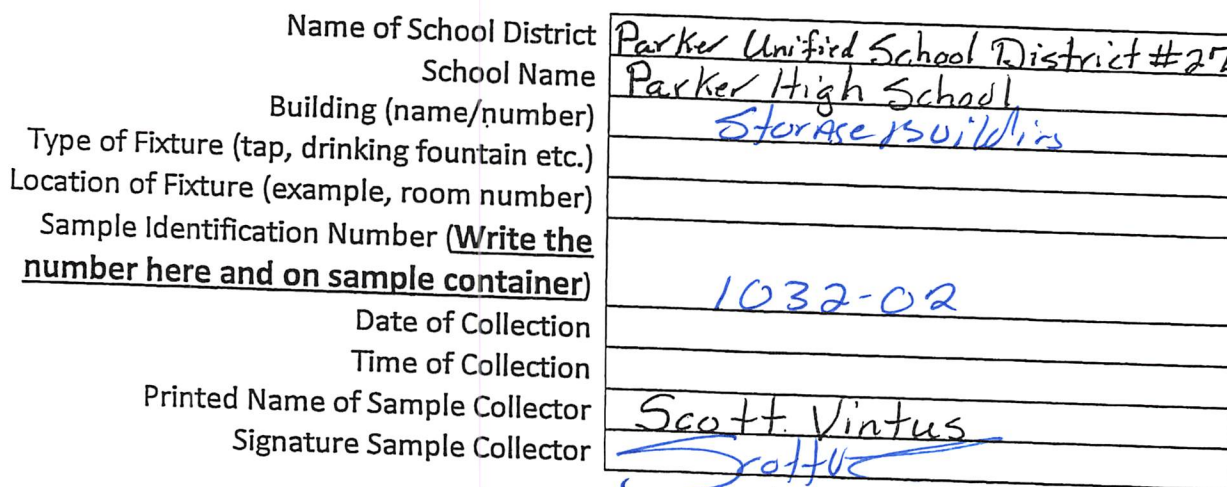 Name of School District Parker Unified School District #27
School Name Parker High School
Building (name/number) Storage Building
Type of Fixture (tap, drinking fountain etc.)
Location of Fixture (example, room number)
Sample Identification Number (Write the
number here and on sample container) 1032-02
Date of Collection
Time of Collection
Printed Name of Sample Collector Scott Vintus
Signature Sample Collector